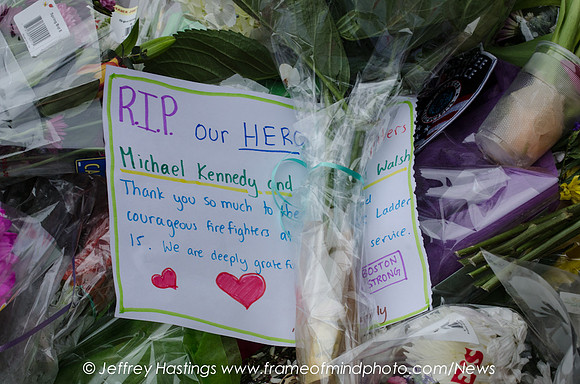 R.I.P. our HERO
Michael Kennedy and Walsh
Thank you so much to the Ladder
courageous firefighters
15. We are deeply service.
BOSTON
STRONG
© Jeffrey Hastings www.frameofmindphoto.com/News